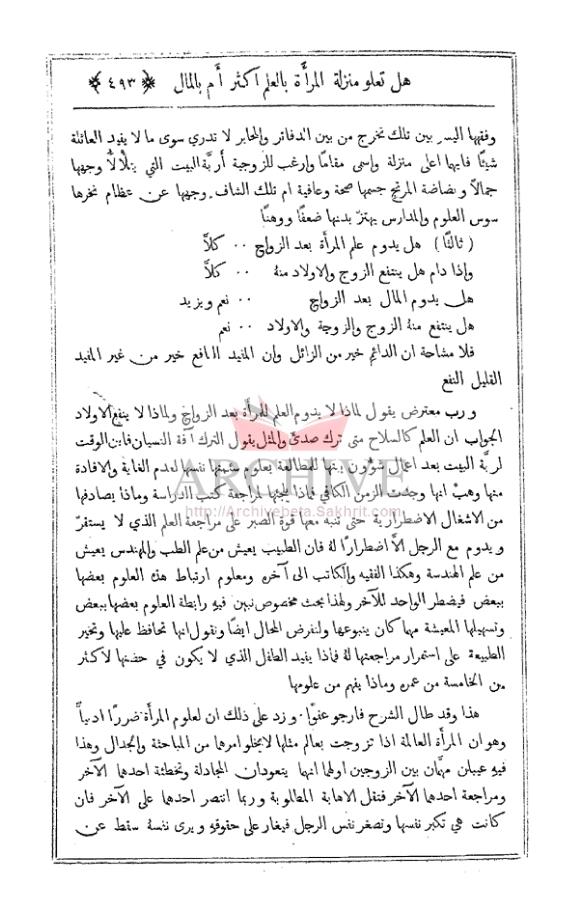 هل تعلو منزلة المرأة بالعلم اكثر أم بالمال ﴿ ٤٩٣ ﴾
وفقيها اليسر بين تلك تخرج من بين الدفاتر والمحابر لا تدري سوى ما لا يفيد العائلة
شيئًا فايها اعلى منزلة واسمى مقامًا وارغب للزوجية أربَّة البيت التي يتلألأ وجهها
جمالاً وبضاضة المرتجّ جسمها صحة وعافية ام تلك الشاف وجهها عن عظام نخرها
سوس العلوم والمدارس يهتزّ بدنها ضعفًا ووهنًا
( ثالثًا ) هل يدوم علم المرأة بعد الزواج ٠٠ كلاَّ
واذا دام هل ينتفع الزوج والاولاد منهُ ٠٠ كلاَّ
هل يدوم المال بعد الزواج ٠٠ نعم ويزيد
هل ينتفع منهُ الزوج والزوجة والاولاد ٠٠ نعم
فلا مشاحة ان الدائم خير من الزائل وان المفيد النافع خير من غير المفيد
القليل النفع
ورب معترض يقول لماذا لا يدوم العلم للمرأة بعد الزواج ولماذا لا ينفع الاولاد
الجواب ان العلم كالسلاح متى ترك صدئ والمثل يقول الترك آفة النسيان فاين الوقت
لربَّة البيت بعد اعمال شؤُون بيتها للمطالعة بعلوم سئمتها نفسها لعدم الغاية والافادة
ARCHIVE
منها وهبْ انها وجدت الزمن الكافي فماذا يلجئها لمراجعة كتب الدراسة وماذا يصادفها
http://Archivebeta.Sakhrit.com
من الاشغال الاضطرارية حتى تنبه معها قوة الصبر على مراجعة العلم الذي لا يستقرّ
ويدوم مع الرجل الاَّ اضطرارًا لهُ فان الطبيب يعيش من علم الطب والمهندس يعيش
من علم الهندسة وهكذا الفقيه والكاتب الى آخره ومعلوم ارتباط هذه العلوم بعضها
ببعض فيضطر الواحد للآخر ولهذا بحث مخصوص نبين فيهِ رابطة العلوم بعضها ببعض
وتسهيلها المعيشة مهما كان ينبوعها ولنفرض المحال ايضًا ونقول انها تحافظ عليها وتجبر
الطبيعة على استمرار مراجعتها لهُ فماذا يفيد الطفل الذي لا يكون في حضنها لاكثر
من الخامسة من عمره وماذا يفهم من علومها
هذا وقد طال الشرح فارجو عفوًا ٠ وزد على ذلك ان لعلوم المرأة ضررًا ادبيًّا
وهو ان المرأة العالمة اذا تزوجت بعالم مثلها لا يخلو امرها من المباحثة والجدال وهذا
فيهِ عيبان مهمَّان بين الزوجين اولهما انهما يتعودان المجادلة وتخطئة احدهما الآخر
ومراجعة احدهما الآخر فتقل الاهابة المطلوبة وربما انتصر احدهما على الآخر فان
كانت هي تكبر نفسها وتصغر نفس الرجل فيغار على حقوقهِ ويرى نفسهُ سقط عن